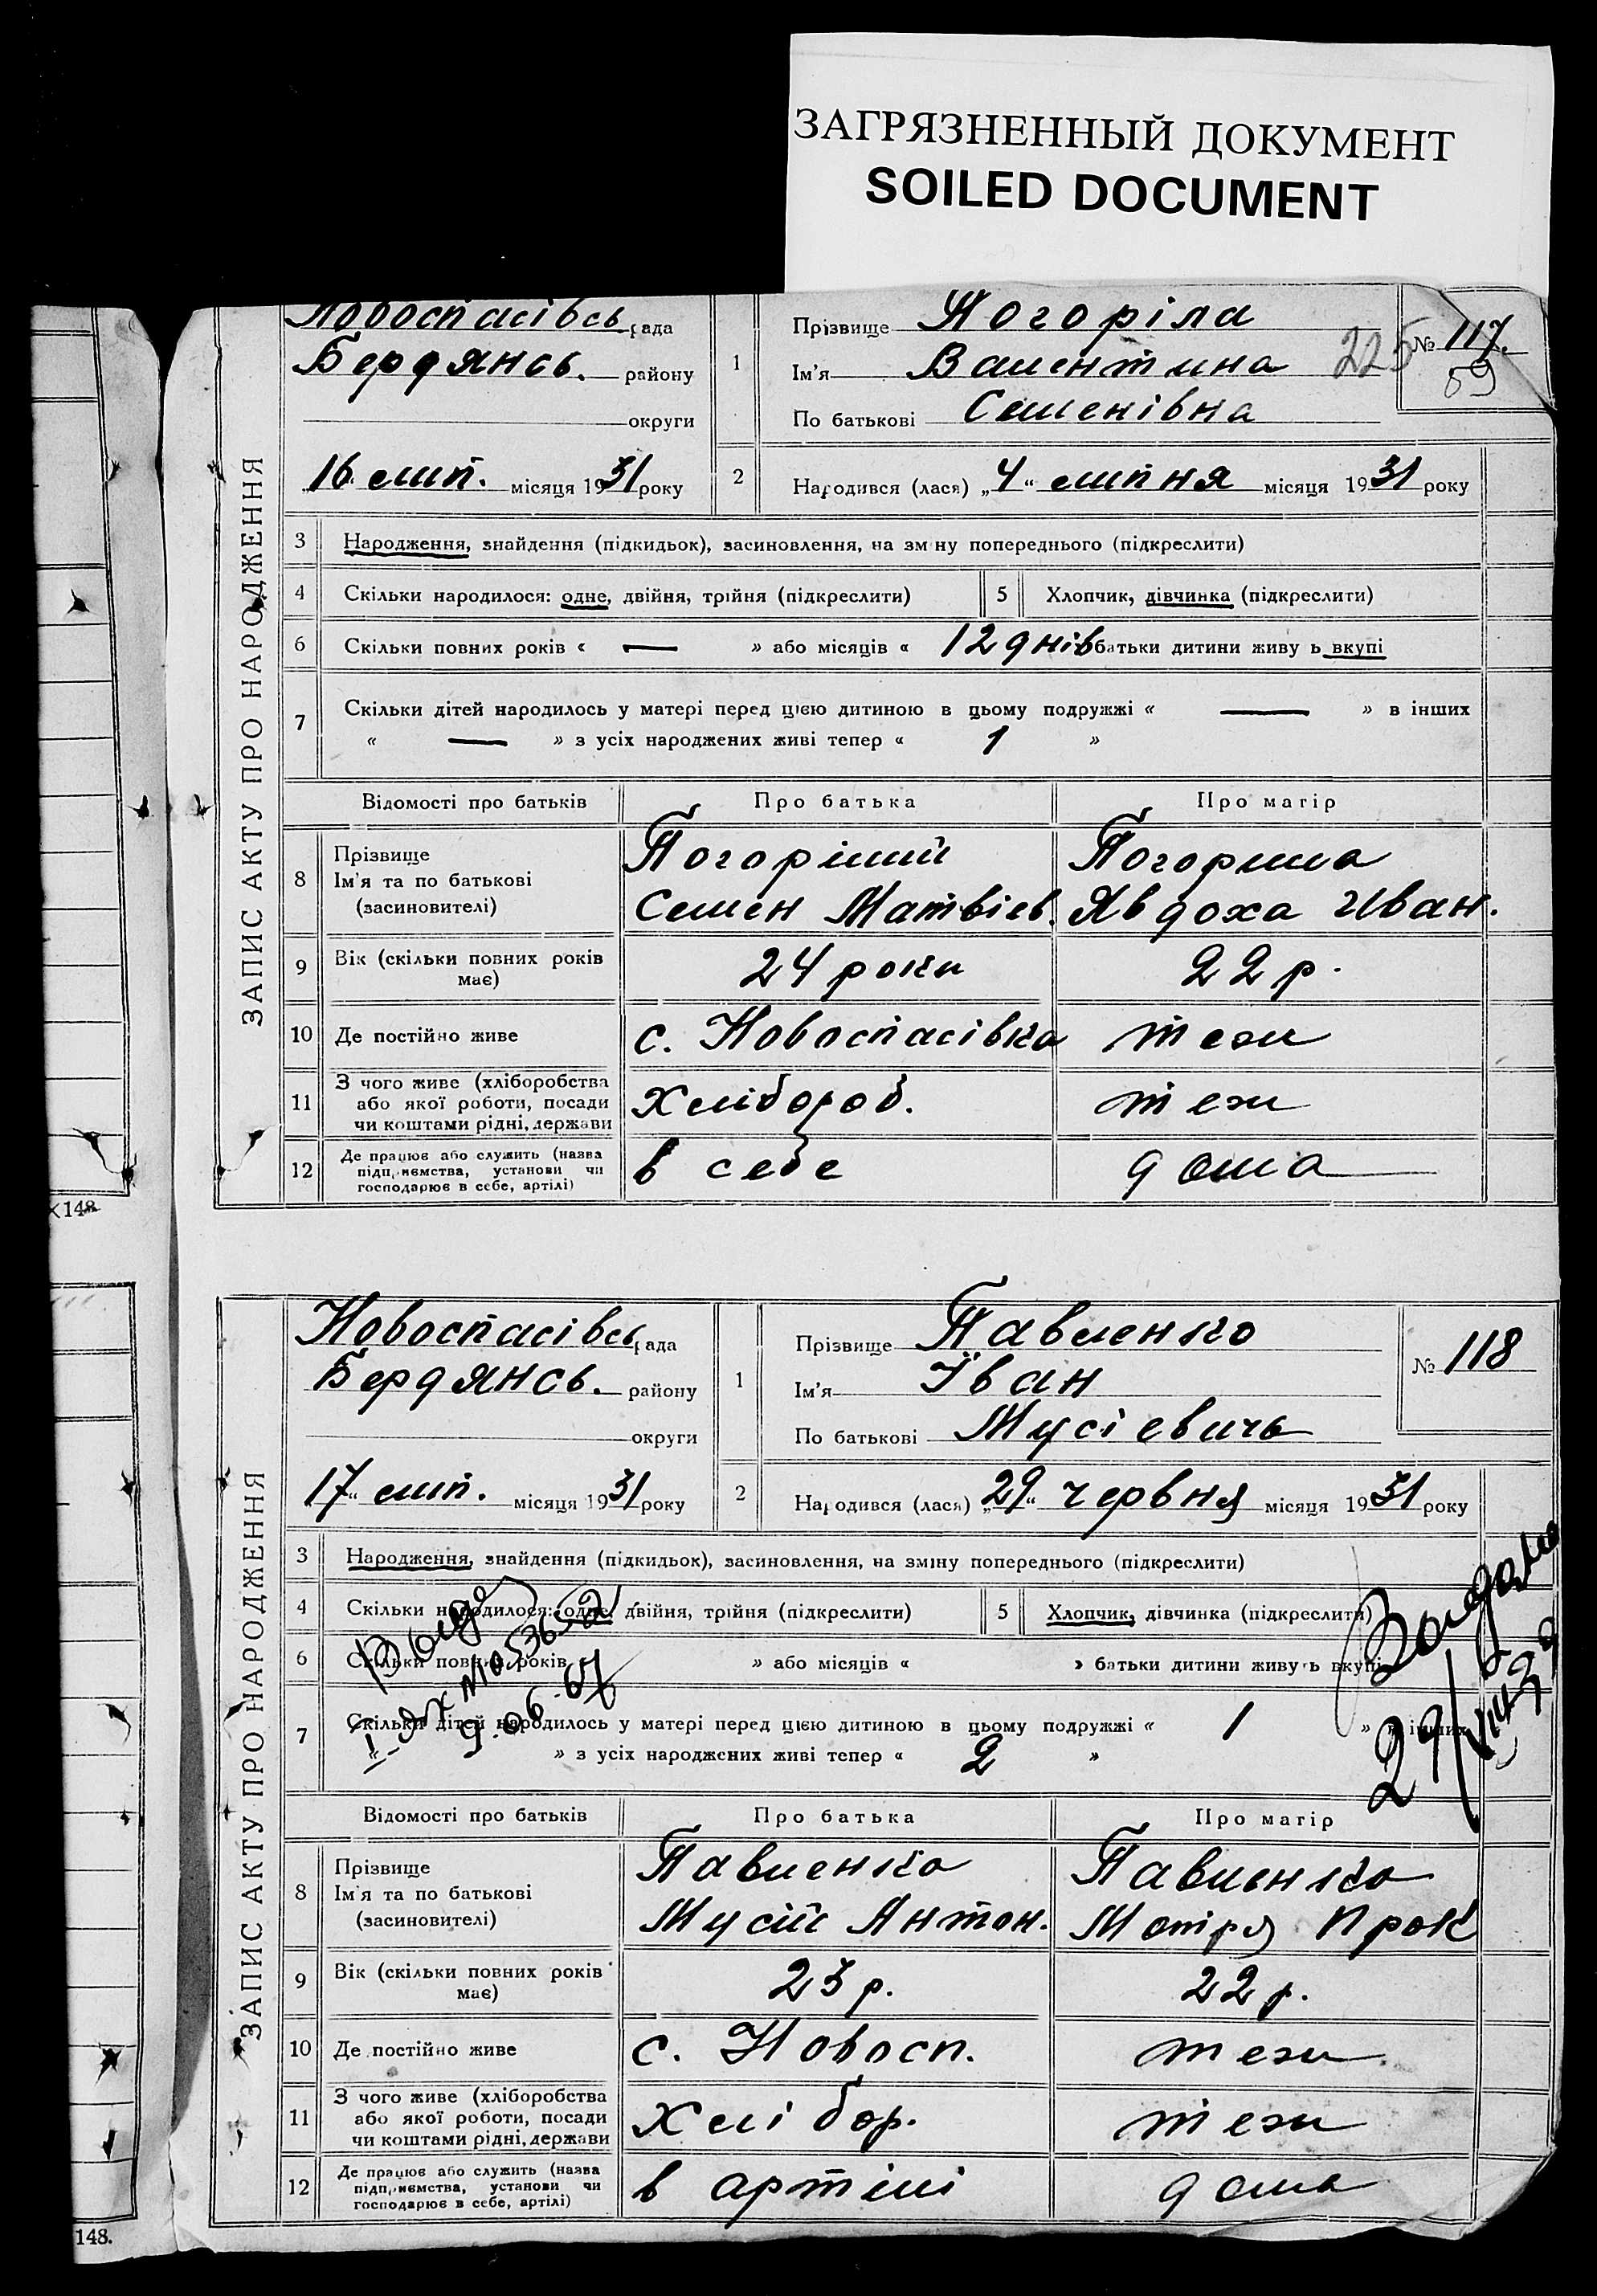 ЗАГРЯЗНЕННЫЙ ДОКУМЕНТ
SOILED DOCUMENT
ЗАПИС АКТУ ПРО НАРОДЖЕННЯ
Новоспасівсь рада
Бердянсь. району
округи
16 лип. місяця 1931 року
1 Прізвище Погоріла
Ім'я Валентина
По батькові Семенівна
225
№ 117.
59
2 Народився (лася) „4“ липня місяця 1931 року
3 Народження, знайдення (підкидьок), засиновлення, на зміну попереднього (підкреслити)
4 Скільки народилося: одне, двійня, трійня (підкреслити) 5 Хлопчик, дівчинка (підкреслити)
6 Скільки повних років « — » або місяців « 12 днів батьки дитини живу ь вкупі
7 Скільки дітей народилось у матері перед цією дитиною в цьому подружжі « — » в інших
« — » з усіх народжених живі тепер « 1 »
Відомості про батьків Про батька Про матір
8 Прізвище
Ім'я та по батькові
(засиновителі)
Погорілий
Семен Матвієв.
Погорила
Явдоха Иван.
9 Вік (скільки повних років
має)
24 роки
22 р.
10 Де постійно живе с. Новоспасівка теж
11 З чого живе (хліборобства
або якої роботи, посади
чи коштами рідні, держави
Хлібороб.
теж
12 Де працює або служить (назва
підприємства, установи чи
господарює в себе, артілі)
в себе
дома
148
ЗАПИС АКТУ ПРО НАРОДЖЕННЯ
Новоспасівсь рада
Бердянсь. району
округи
17“ лип. місяця 1931 року
1 Прізвище Павленко
Ім'я Іван
По батькові Мусієвичь
№ 118
2 Народився (лася) „29“ червня місяця 1931 року
3 Народження, знайдення (підкидьок), засиновлення, на зміну попереднього (підкреслити)
4 Скільки народилося: одне, двійня, трійня (підкреслити) 5 Хлопчик, дівчинка (підкреслити)
6 Скільки повних років » або місяців « » батьки дитини живуть вкупі
7 Скільки дітей народилось у матері перед цією дитиною в цьому подружжі « 1 » в інших
« » з усіх народжених живі тепер « 2 »
9.06.67
29/VIII 39
Відомості про батьків Про батька Про матір
8 Прізвище
Ім'я та по батькові
(засиновителі)
Павленко
Мусій Антон.
Павленко
Мотря Прок
9 Вік (скільки повних років
має)
23 р.
22 р.
10 Де постійно живе с. Новосп. теж
11 З чого живе (хліборобства
або якої роботи, посади
чи коштами рідні, держави
Хлібор.
теж
12 Де працює або служить (назва
підприємства, установи чи
господарює в себе, артілі)
в артілі
дома
148.